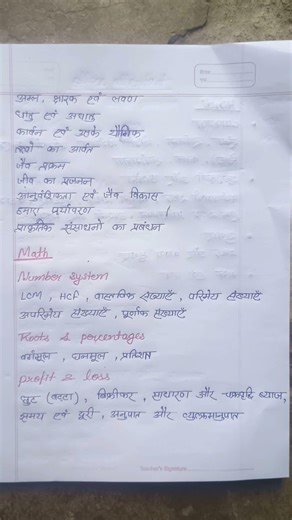 अम्ल, क्षारक एवं लवण
धातु एवं अधातु
कार्बन एवं उसके यौगिक
तत्वों का आवर्त
जैव प्रक्रम
जीव का प्रजनन
आनुवंशिकता एवं जैव विकास
हमारा पर्यावरण
प्राकृतिक संसाधनों का प्रबंधन
Math
Number System
LCM, HCF, वास्तविक संख्याएँ, परिमेय संख्याएँ
अपरिमेय संख्याएँ, पूर्णांक संख्याएँ
Roots & percentages
वर्गमूल, घनमूल, प्रतिशत
profit & loss
छुट (बट्टा), बिक्रीकर, साधारण और चक्रवृद्धि ब्याज,
समय एवं दूरी, अनुपात और व्युत्क्रमानुपात
Teacher's Signature